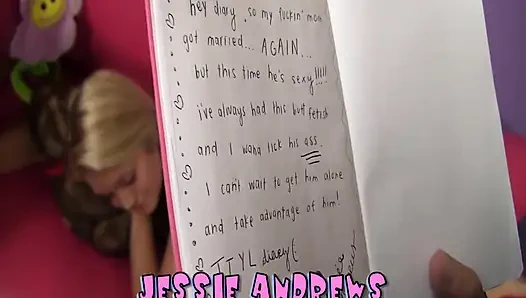 hey diary, so my fuckin' mom
got married... AGAIN...
but this time he's sexy!!!!!
i've always had this butt fetish
and I wana lick his ass.
I can't wait to get him alone
and take advantage of him!
TTYL diary(
JESSIE ANDREWS